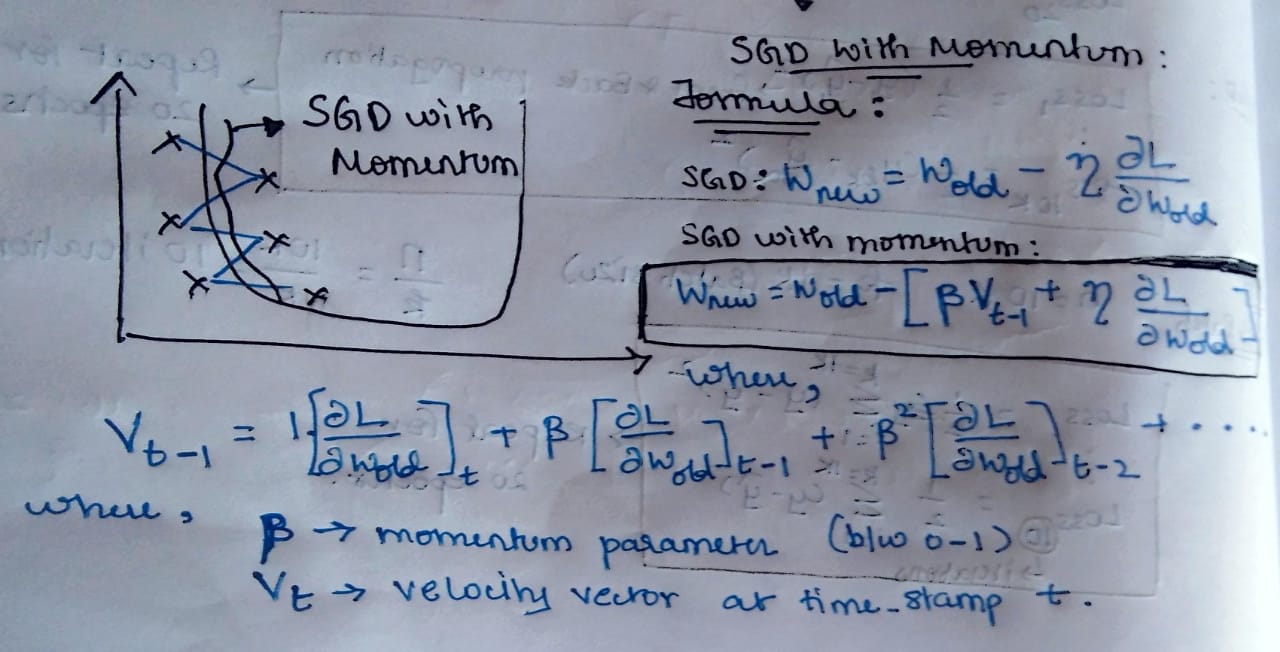 SGD with Momentum:
Formula:
SGD with
Momentum
SGD: W_new = W_old - η ∂L/∂W_old
SGD with momentum:
W_new = W_old - [β V_t-1 + η ∂L/∂W_old]
where,
V_t-1 = 1[∂L/∂W_old]_t + β[∂L/∂W_old]_t-1 + β²[∂L/∂W_old]_t-2 + ....
where,
β → momentum parameter (b/w 0-1)
V_t → velocity vector at time-stamp t.